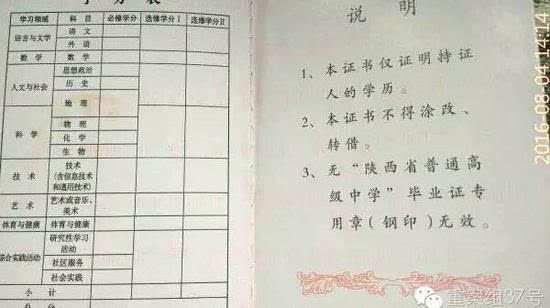 学习领域 科 目 必修学分 选修学分Ⅰ 选修学分Ⅱ
语言与文学 语 文
外 语
数 学 数 学
人文与社会 思想政治
历 史
地 理
科 学 物 理
化 学
生 物
技 术 技术
(含信息技术
和通用技术)
艺 术 艺术或音乐、
美术
体育与健康 体育与健康
综合实践活动 研究性学习
活动
社区服务
社会实践
小 计
说 明
1、本证书仅证明持证
人的学历。
2、本证书不得涂改、
转借。
3、无“陕西省普通高
级中学”毕业证专
用章(钢印)无效。
2016-08-04 14:14
重案组37号